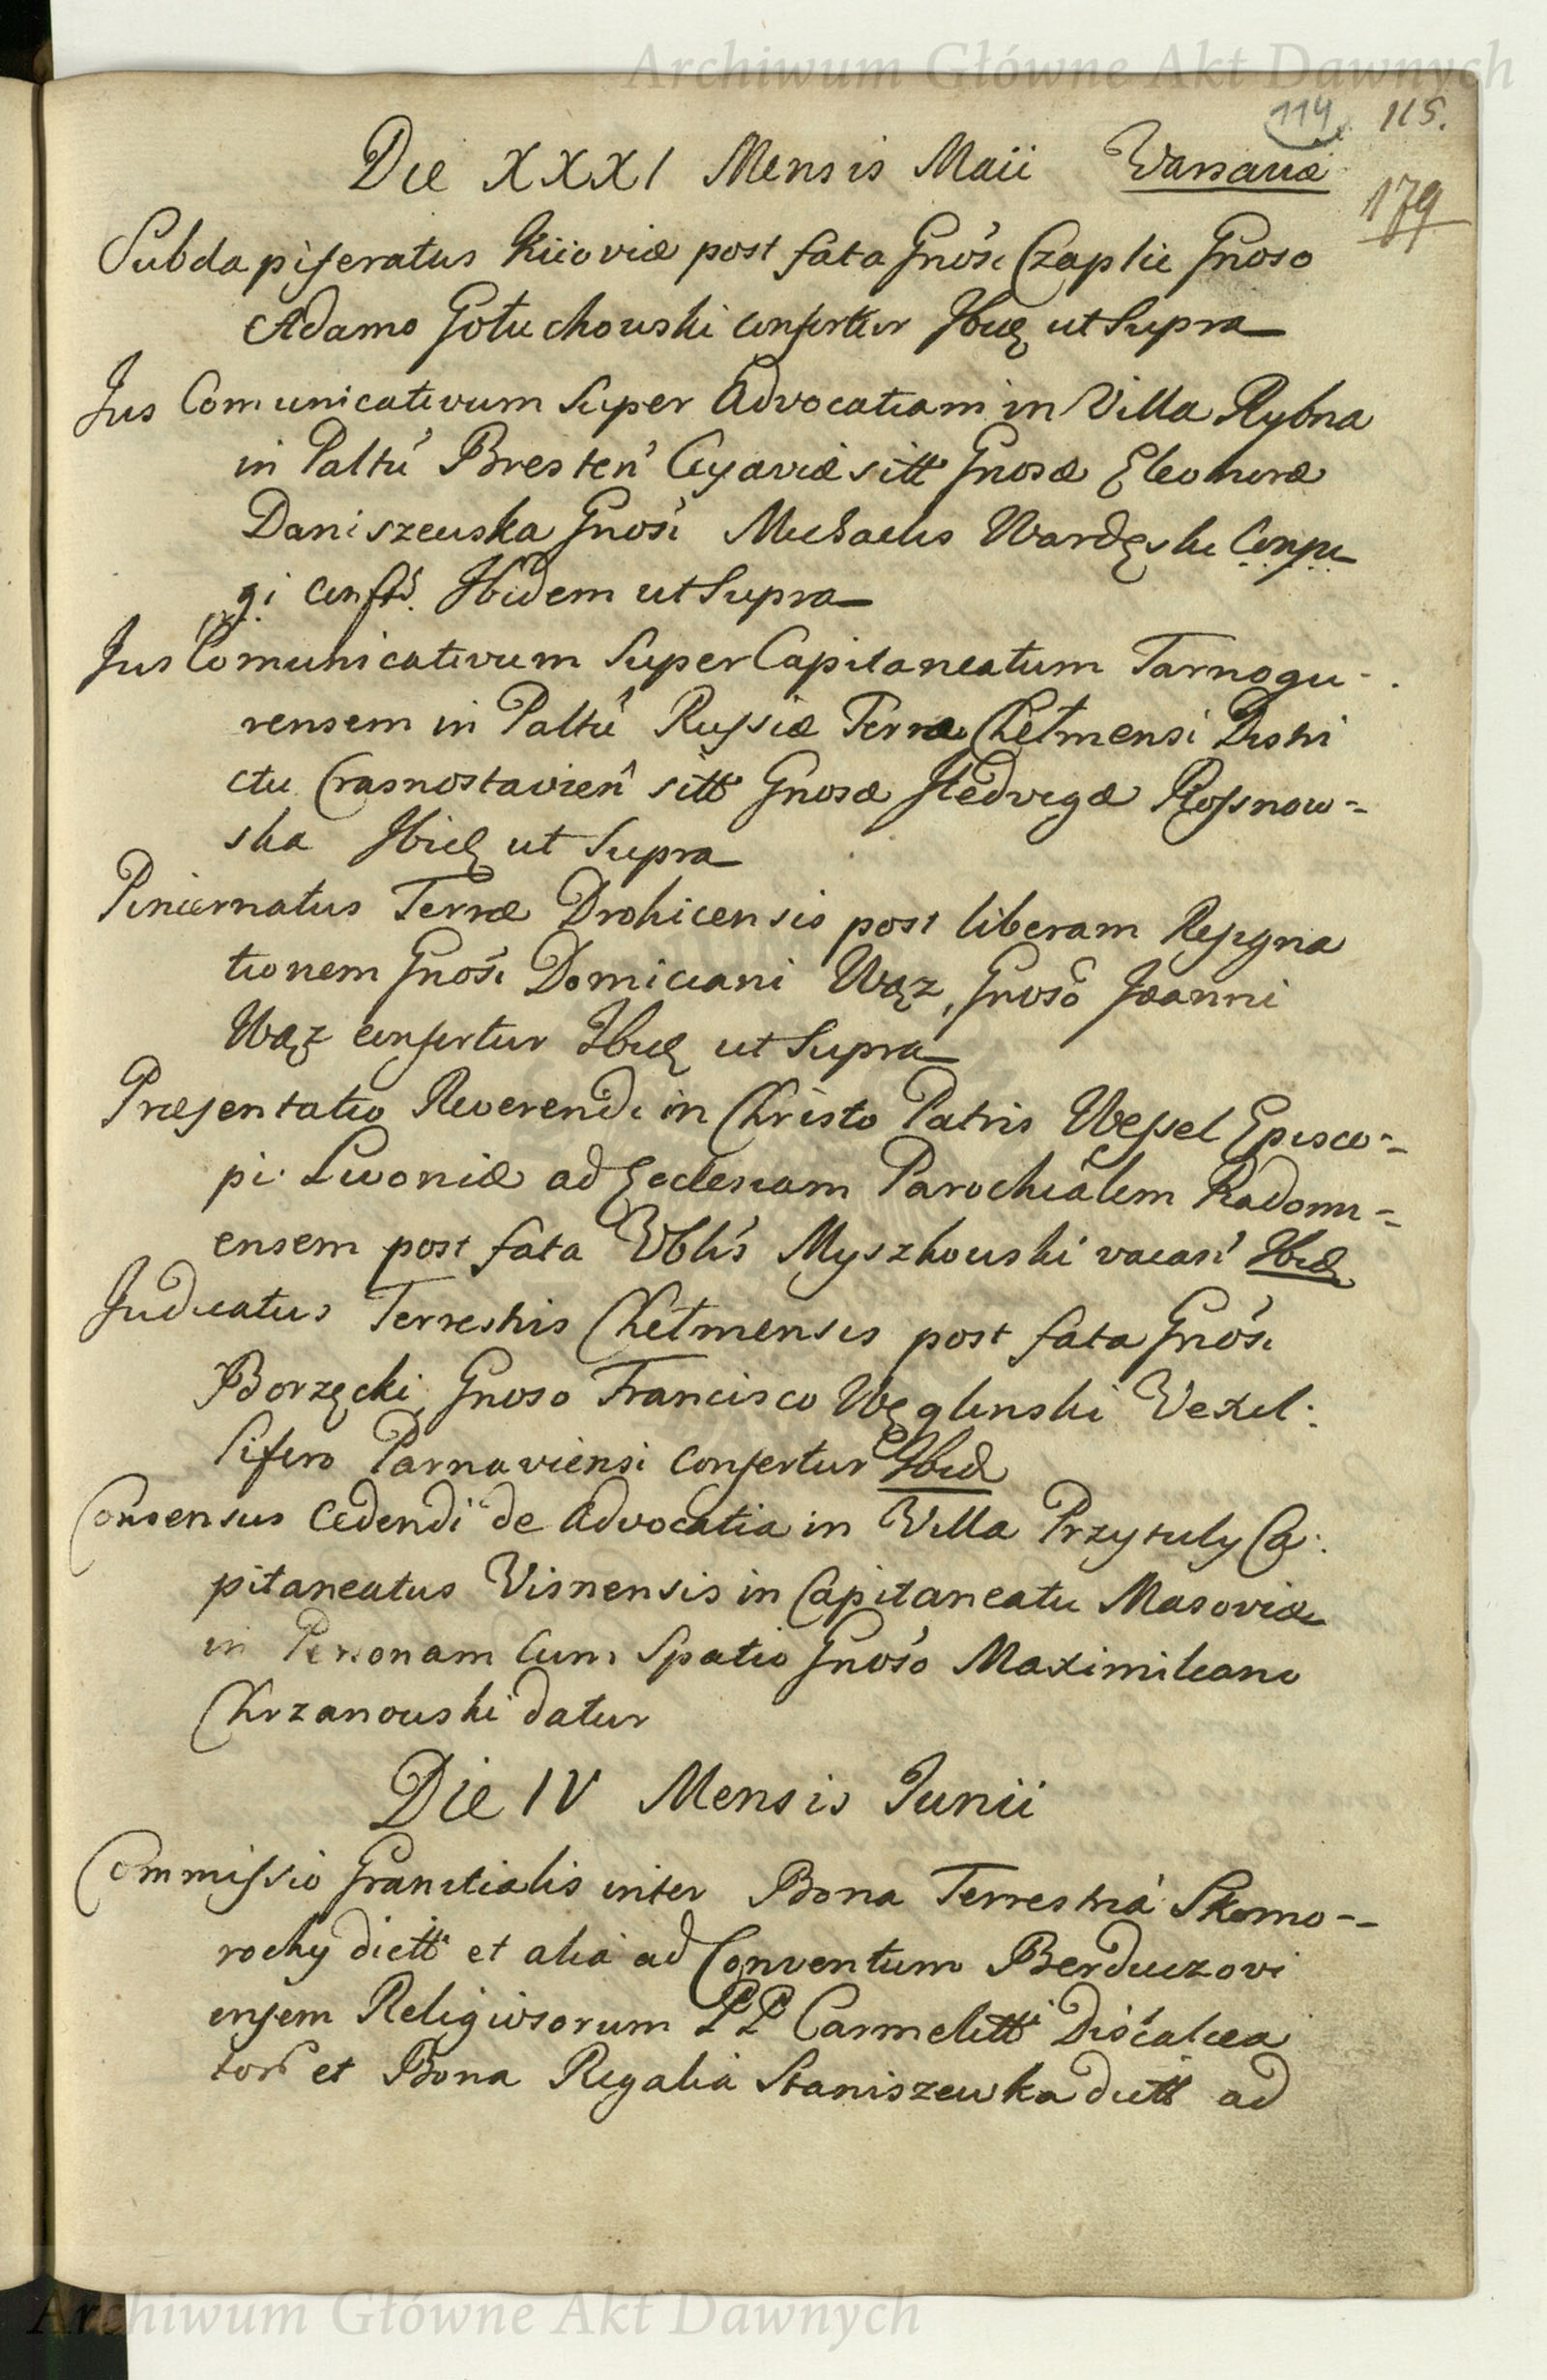 Archiwum Główne Akt Dawnych
114 115.
Die XXXI Mensis Maii Varsaviæ
179
Subdapiferatus Kiioviæ post fata Gnosi Czaplic Gnoso
Adamo Gołuchowski confertur Ibid ut Supra
Jus Comunicativum Super Advocatiam in Villa Rybna
in Palttu Bresten Cuyaviæ sitt Gnosæ Eleonoræ
Daniszewska Gnosi Michaelis Wardęski Conju
gi confr. Ibidem ut Supra
Jus Comunicativum Super Capitaneatum Tarnogu-
rensem in Palttu Russiæ Terræ Chełmensi Distri
ctu Crasnostavien sitt Gnosæ Hedvigæ Rossnow-
ska Ibid ut Supra
Pincernatus Terræ Drohicensis post liberam Resigna
tionem Gnosi Domiciani Wąz, Gnoso Joanni
Wąz confertur Ibid ut Supra
Præsentatio Reverendi in Christo Patris Wessel Episco-
pi Livoniæ ad Ecclesiam Parochialem Radomi-
ensem post fata Vblis Myszkowski vacan Ibid
Judicatus Terrestris Chełmensis post fata Gnosi
Borzęcki Gnoso Francisco Węglinski Vexil:
lifero Parnaviensi confertur Ibid
Consensus Cedendi de Advocatia in Villa Przytuly Ca:
pitaneatus Visnensis in Capitaneatu Masoviæ
in Personam Cum Spatio Gnoso Maximiliano
Chrzanowski datur
Die IV Mensis Junii
Commissio Granitialis inter Bona Terrestria Skomo-
rochy dictt et alia ad Conventum Berdiczovi
ensem Religiosorum PP Carmelitt Discalcea
tor et Bona Regalia Staniszewka dictt ad
Archiwum Główne Akt Dawnych